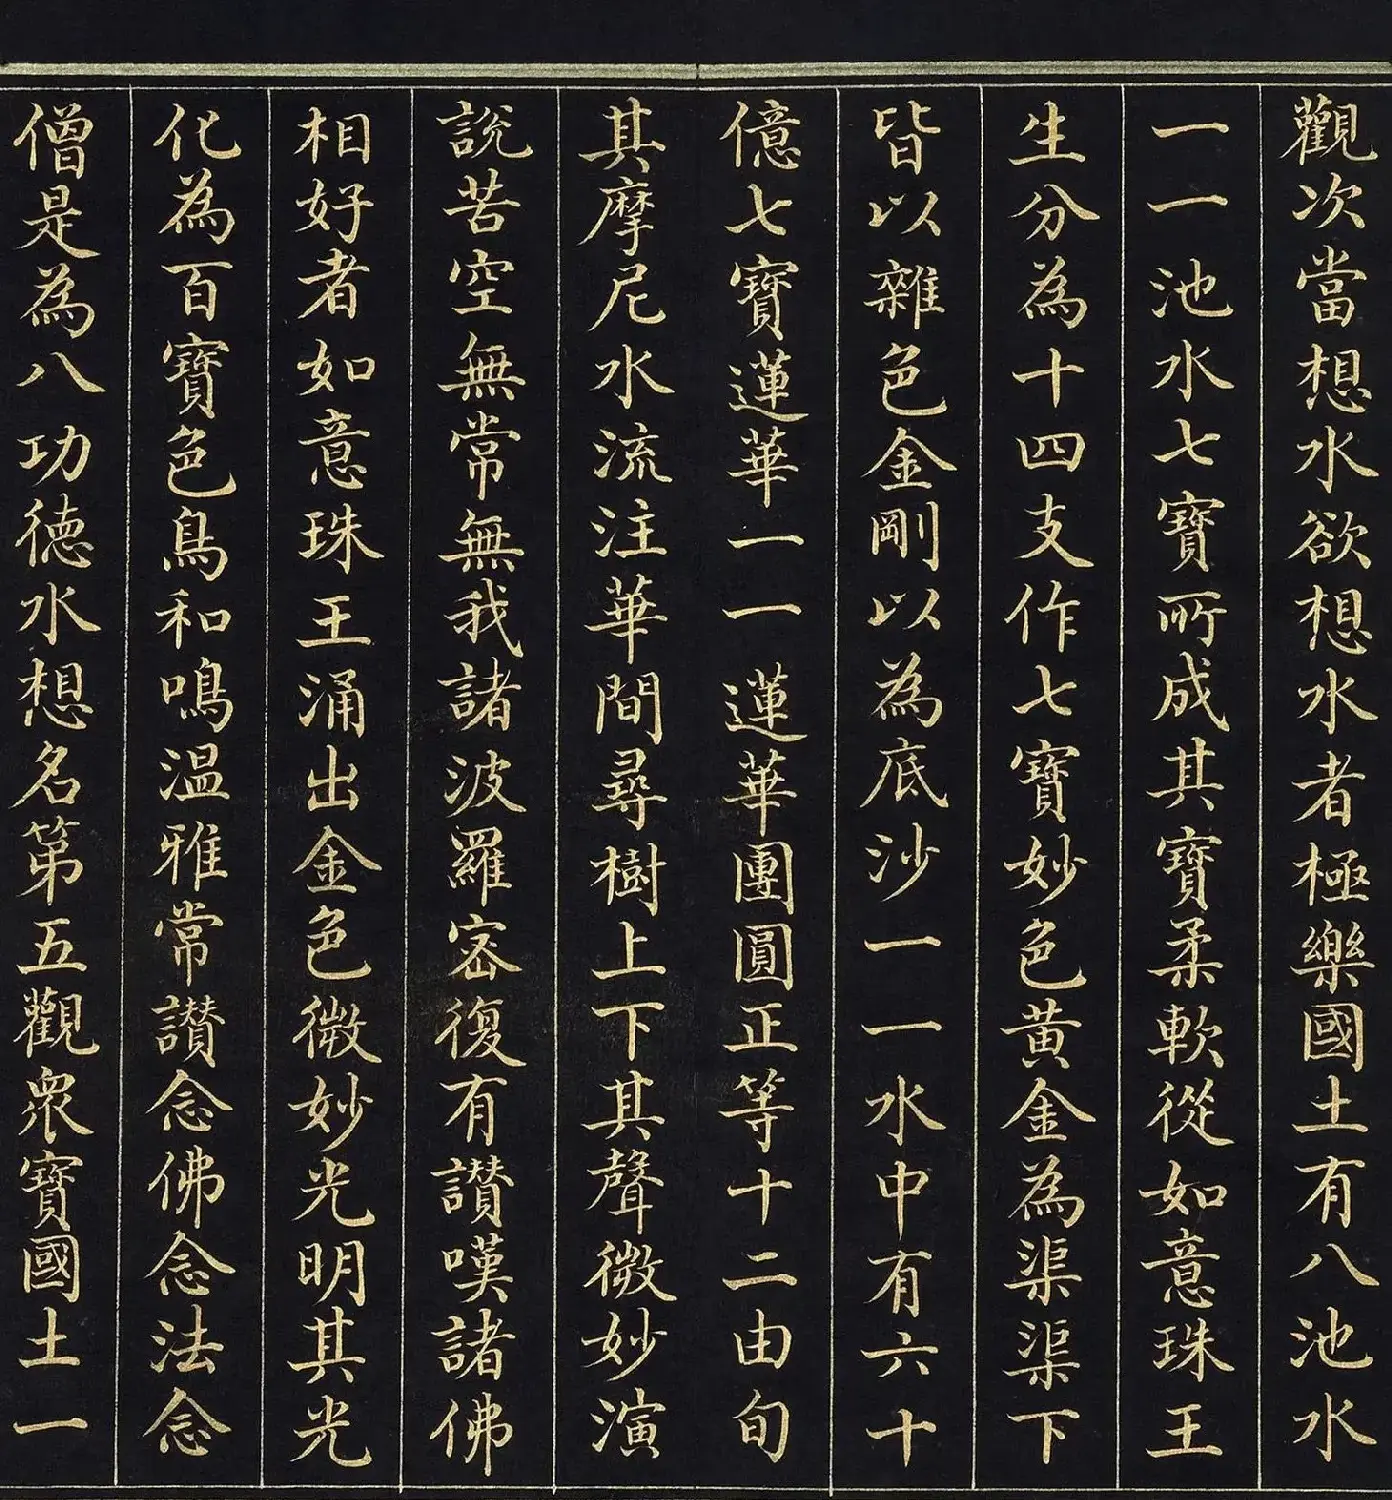 觀次當想水欲想水者極樂國土有八池水
一一池水七寶所成其寶柔軟從如意珠王
生分為十四支作七寶妙色黃金為渠渠下
皆以雜色金剛以為底沙一一水中有六十
億七寶蓮華一一蓮華團圓正等十二由旬
其摩尼水流注華間尋樹上下其聲微妙演
說苦空無常無我諸波羅密復有讚嘆諸佛
相好者如意珠王涌出金色微妙光明其光
化為百寶色鳥和鳴溫雅常讚念佛念法念
僧是為八功德水想名第五觀眾寶國土一